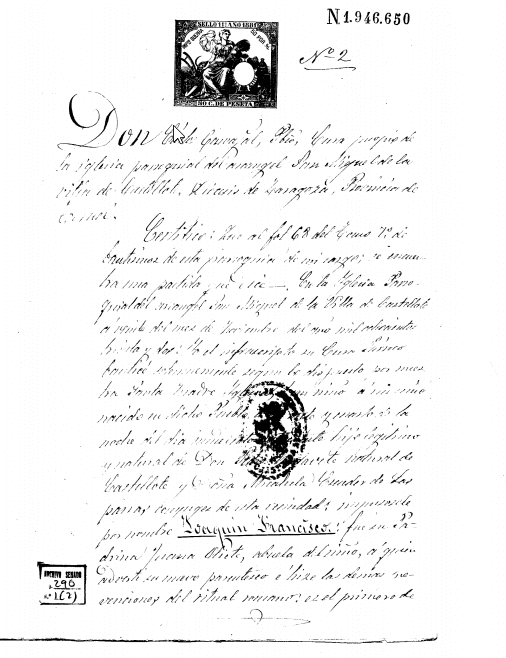 N 1.946.650
SELLO 11º AÑO 1881
50 C. DE PESETA
Nº 2
Don Carvajal, Pbro, Cura propio de
la iglesia parroquial del arcangel San Miguel de la
villa de Castellote, Diocesis de Zaragoza, Provincia de
Teruel.
Certifico: Que al fol 68 del Tomo 12 de
bautismos de esta parroquia de mi cargo, se encuen-
tra una partida que dice — En la Iglesia Parro-
quial del arcangel San Miguel de la Villa de Castellote
á veinte del mes de Noviembre del año mil ochocientos
treinta y dos: Yo el infrascripto su Cura Parroco
bauticé solemnemente segun lo dispuesto por nues-
tra Santa Madre Iglesia un niño
nacido en dicho Pueblo y cuarto de la
noche del dia hijo legitimo
y natural de Don natural de
Castellote y Doña Micaela de Las
parras conyuges de esta vecindad; impusosele
por nombre Joaquin Francisco: fue su Pa-
drina abuela del niño, á quien
advertí su nuevo parentesco é hize las demas pre-
venciones del ritual romano: es el primero de
ARCHIVO SENADO
290
Nº 1(2)